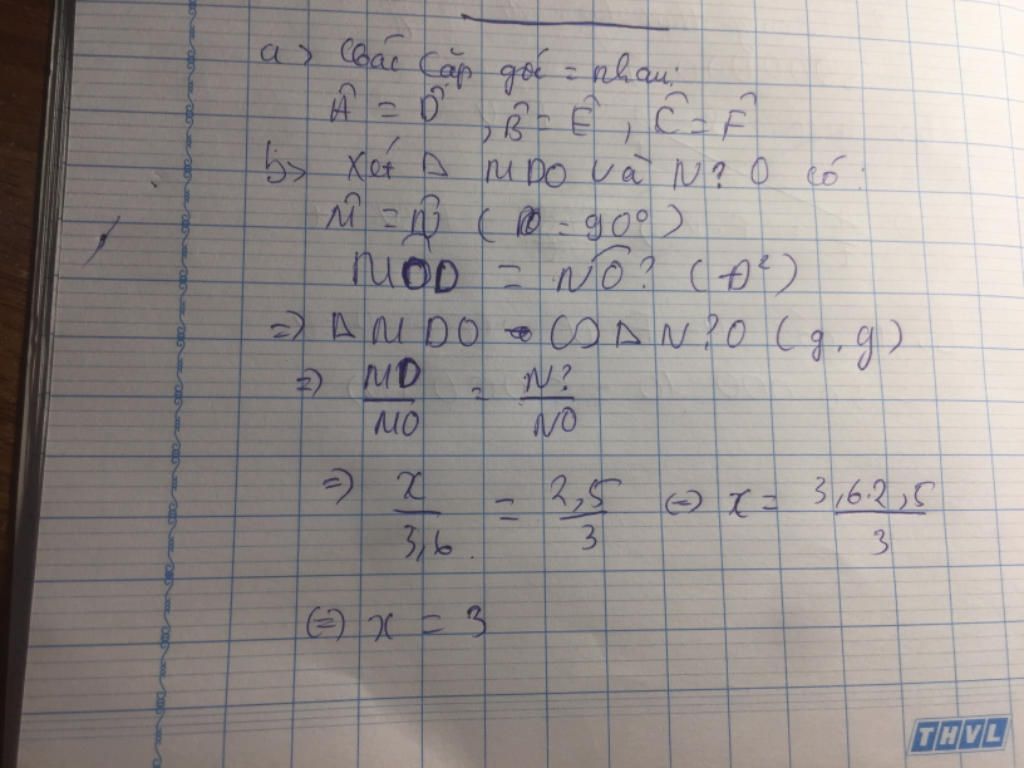 a) Các cặp góc = nhau:
Â = D̂ , B̂ = Ê , Ĉ = F̂
b) Xét Δ MDO và N?O có:
M̂ = N̂ ( = 90°)
MOD = NO? (Đ²)
=> Δ MDO ∽ Δ N?O (g.g)
=> MD/MO = N?/NO
=> x/3,6 = 2,5/3 <=> x = 3,6.2,5/3
(=) x = 3
THVL